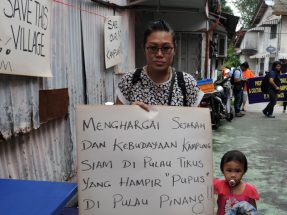 SAVE THIS
VILLAGE
MENGHARGAI SEJARAH
DAN KEBUDAYAAN KAMPUNG
SIAM DI PULAU TIKUS
YANG HAMPIR "PUPUS"
DI PULAU PINANG!